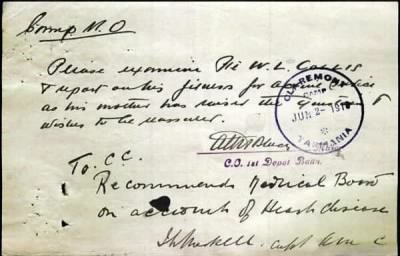 Camp M.O
Please examine Pte W. L.
& report on his fitness for active service
as his mother has raised the question &
wishes to be reassured.
C.O. 1st Depot Battn.
CLAREMONT
CAMP
JUN 2- 191
TASMANIA
To CC.
Recommends Medical Board
on account of Heart disease
Capt AMC